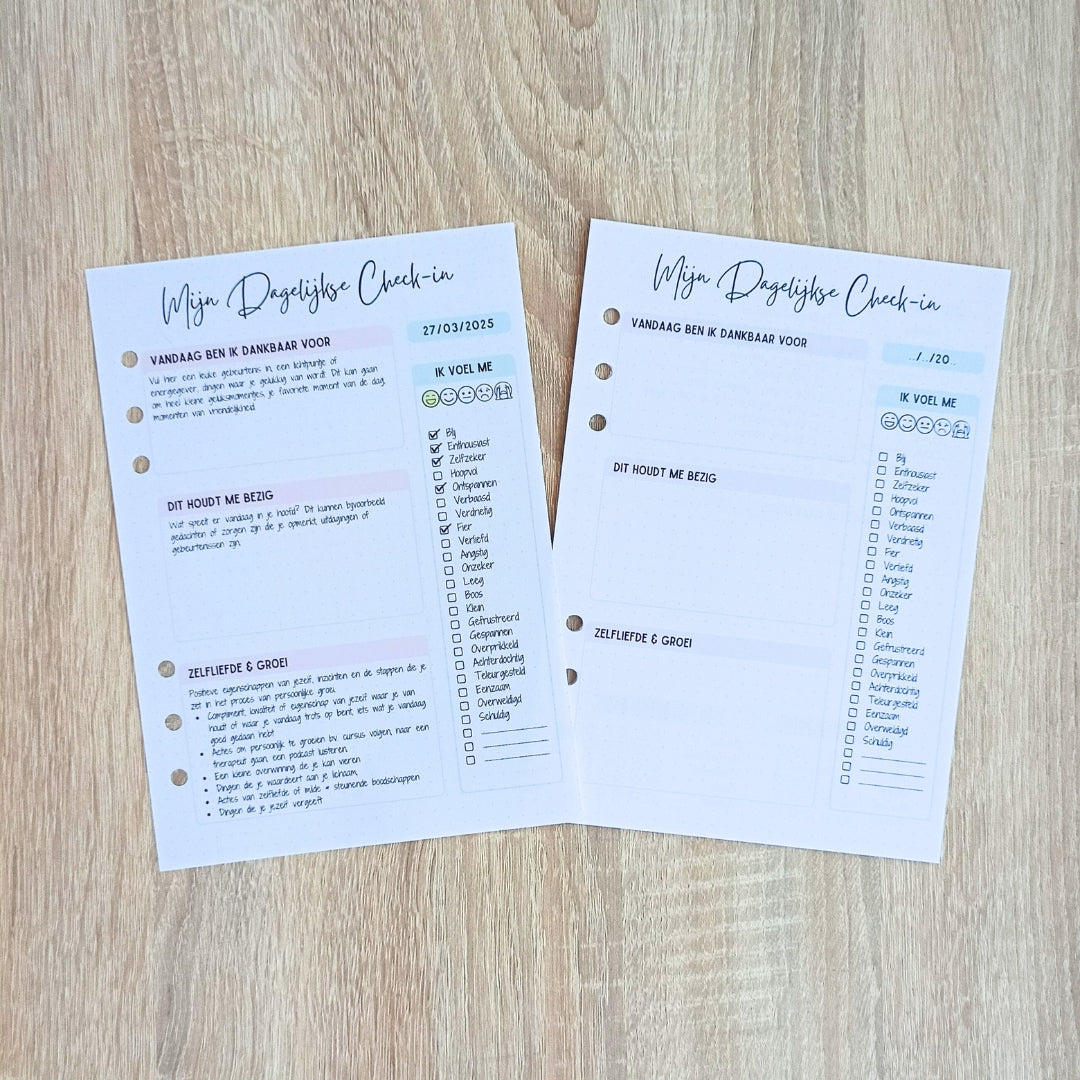 Mijn Dagelijkse Check-in
27/03/2025
VANDAAG BEN IK DANKBAAR VOOR
Vul hier een leuke gebeurtenis in, een lichtpuntje of
energiegever, dingen waar je gelukkig van wordt. Dit kan gaan
om heel kleine geluksmomentjes, je favoriete moment van de dag,
momenten van vriendelijkheid.
DIT HOUDT ME BEZIG
Wat speelt er vandaag in je hoofd? Dit kunnen bijvoorbeeld
gedachten of zorgen zijn die je opmerkt, uitdagingen of
gebeurtenissen zijn.
ZELFLIEFDE & GROEI
Positieve eigenschappen van jezelf, inzichten en de stappen die je
zet in het proces van persoonlijke groei.
• Compliment, kwaliteit of eigenschap van jezelf waar je van
houdt of waar je vandaag trots op bent, iets wat je vandaag
goed gedaan hebt
• Acties om persoonlijk te groeien bv. cursus volgen, naar een
therapeut gaan, een podcast luisteren
• Een kleine overwinning die je kan vieren
• Dingen die je waardeert aan je lichaam
• Acties van zelfliefde of milde + steunende boodschappen
• Dingen die je jezelf vergeeft
IK VOEL ME
Blij
Enthousiast
Zelfzeker
Hoopvol
Ontspannen
Verbaasd
Verdrietig
Fier
Verliefd
Angstig
Onzeker
Leeg
Boos
Klein
Gefrustreerd
Gespannen
Overprikkeld
Achterdochtig
Teleurgesteld
Eenzaam
Overweldigd
Schuldig
Mijn Dagelijkse Check-in
../../20..
VANDAAG BEN IK DANKBAAR VOOR
DIT HOUDT ME BEZIG
ZELFLIEFDE & GROEI
IK VOEL ME
Blij
Enthousiast
Zelfzeker
Hoopvol
Ontspannen
Verbaasd
Verdrietig
Fier
Verliefd
Angstig
Onzeker
Leeg
Boos
Klein
Gefrustreerd
Gespannen
Overprikkeld
Achterdochtig
Teleurgesteld
Eenzaam
Overweldigd
Schuldig